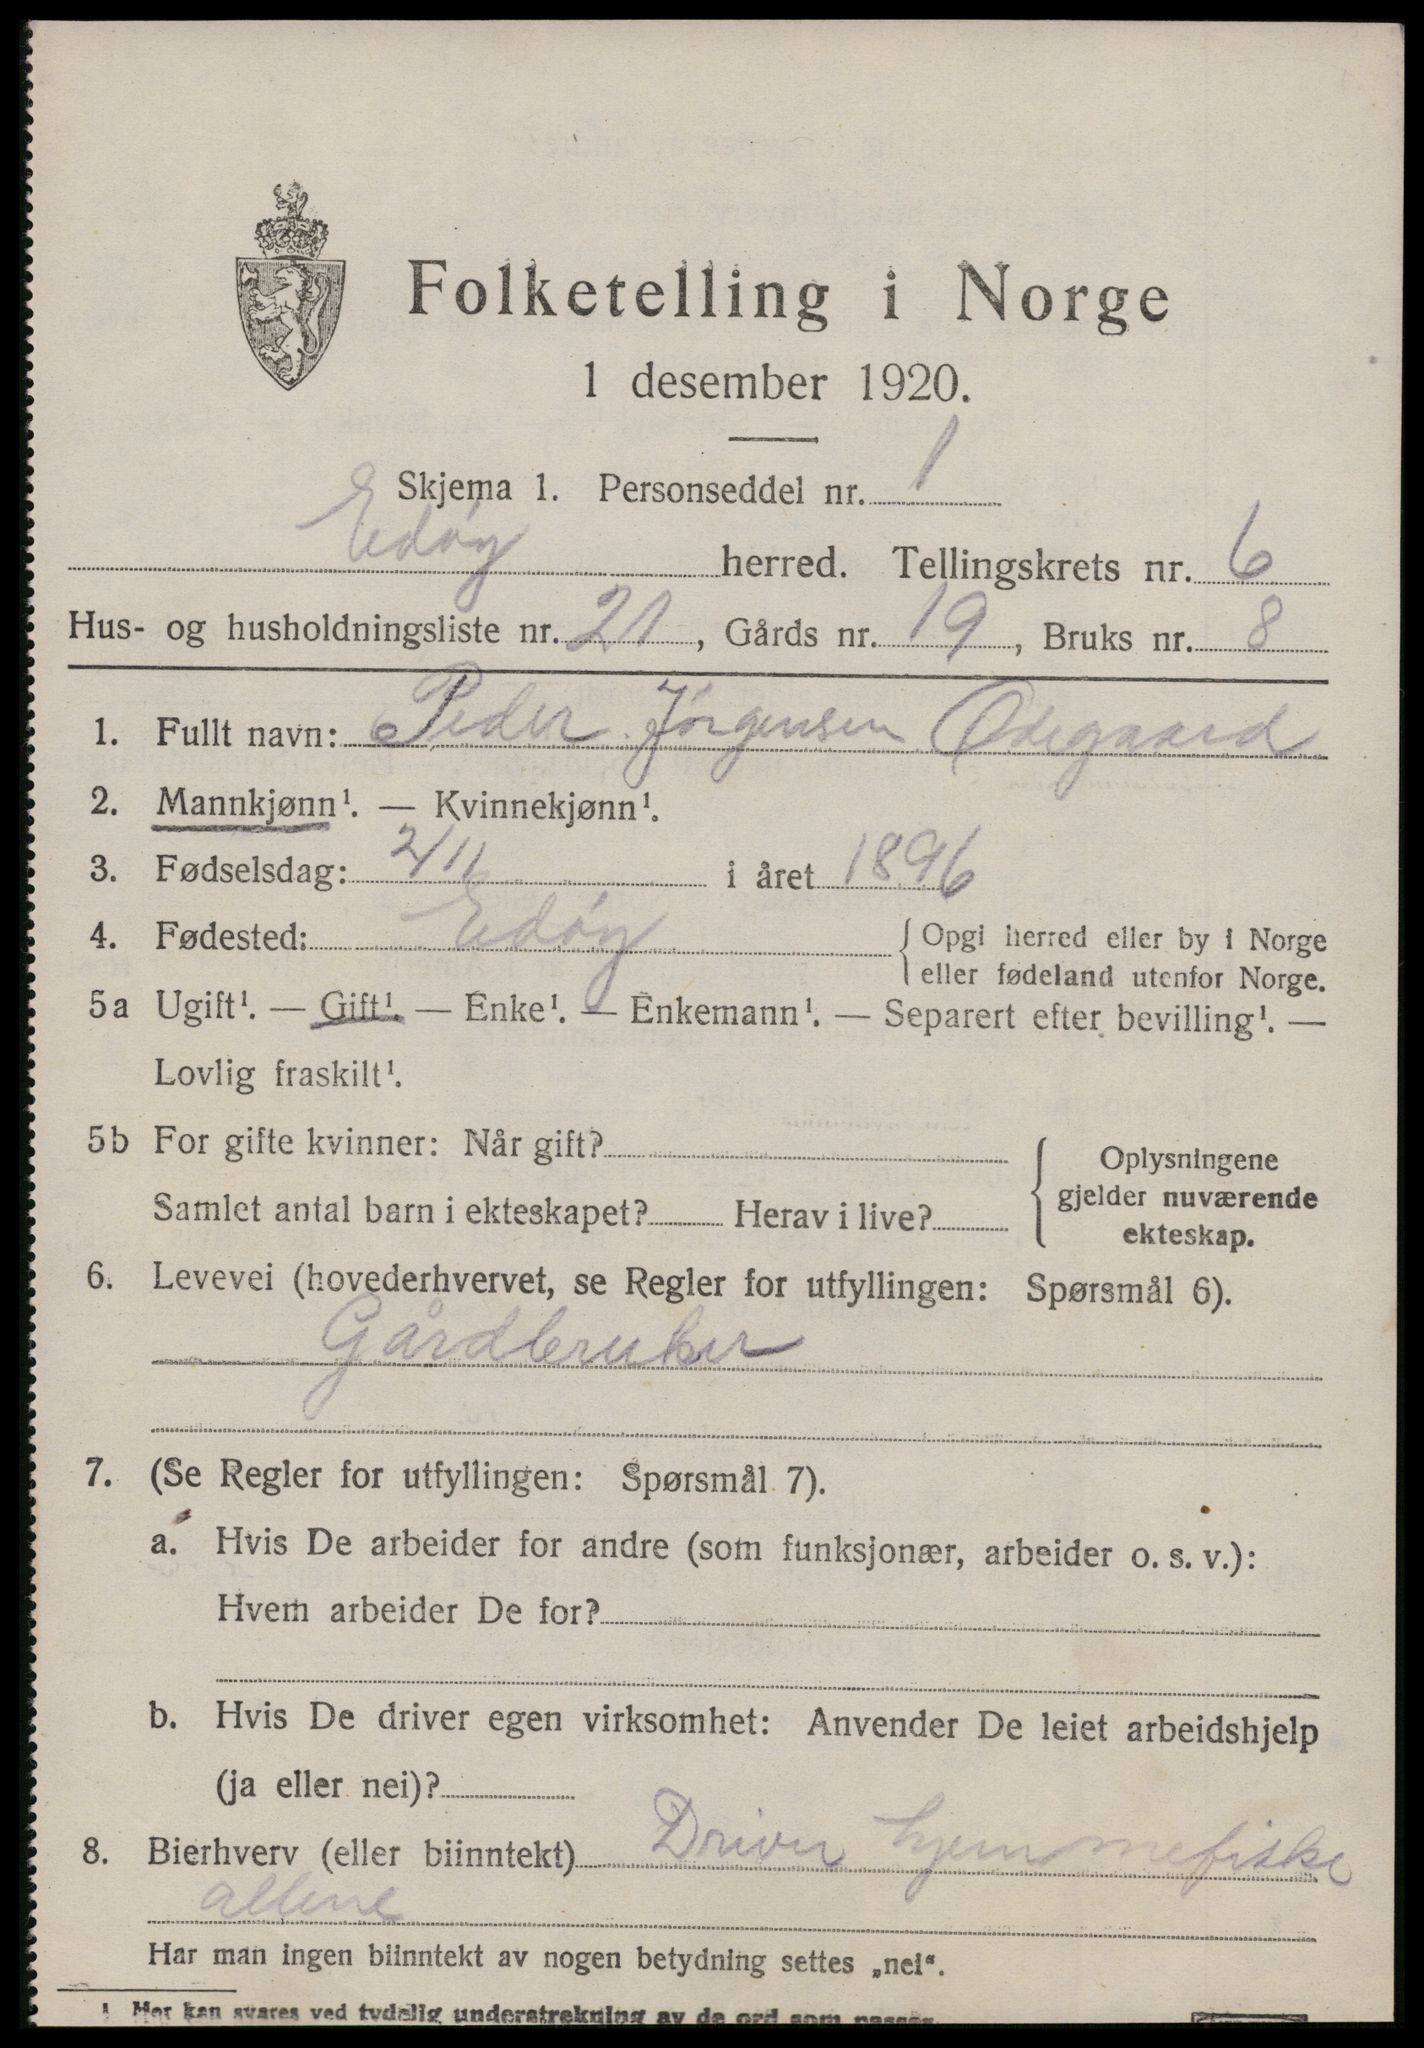 Folketelling i Norge
1 desember 1920.
Skjema 1. Personseddel nr. 1
Edøy herred. Tellingskrets nr. 6
Hus- og husholdningsliste nr. 21, Gårds nr. 19, Bruks nr. 8
1. Fullt navn: Peder Jørgensen Ødegaard
2. Mannkjønn¹. — Kvinnekjønn¹.
3. Fødselsdag: 2/11 i året 1896
4. Fødested: Edøy { Opgi herred eller by i Norge
eller fødeland utenfor Norge.
5a Ugift¹. — Gift¹. — Enke¹. — Enkemann¹. — Separert efter bevilling¹. —
Lovlig fraskilt¹.
5b For gifte kvinner: Når gift?
Samlet antal barn i ekteskapet? Herav i live?
{ Oplysningene
gjelder nuværende
ekteskap.
6. Levevei (hovederhvervet, se Regler for utfyllingen: Spørsmål 6).
Gårdbruker
7. (Se Regler for utfyllingen: Spørsmål 7).
a. Hvis De arbeider for andre (som funksjonær, arbeider o. s. v.):
Hvem arbeider De for?
b. Hvis De driver egen virksomhet: Anvender De leiet arbeidshjelp
(ja eller nei)?
8. Bierhverv (eller biinntekt) Driver hjemmefiske
allene
Har man ingen biinntekt av nogen betydning settes „nei“.
1 Her kan svares ved tydelig understrekning av de ord som passer.